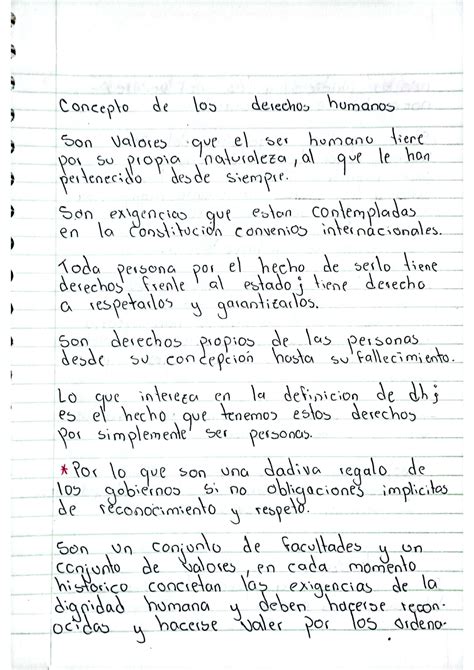 Concepto de los derechos humanos
Son Valores que el ser humano tiene
por su propia naturaleza, al que le han
pertenecido desde siempre.
Son exigencias que estan contempladas
en la Constitución convenios internacionales.
Toda persona por el hecho de serlo tiene
derechos frente al estado; tiene derecho
a respetarlos y garantizarlos.
Son derechos propios de las personas
desde su concepción hasta su fallecimiento.
Lo que intereza en la definicion de dh;
es el hecho que tenemos estos derechos
por simplemente ser personas.
*Por lo que son una dadiva regalo de
los gobiernos si no obligaciones implicitas
de reconocimiento y respeto.
Son un conjunto de facultades y un
conjunto de Valores, en cada momento
historico concretan las exigencias de la
dignidad humana y deben hacerse recon-
ocidas y hacerse valer por los ordena-